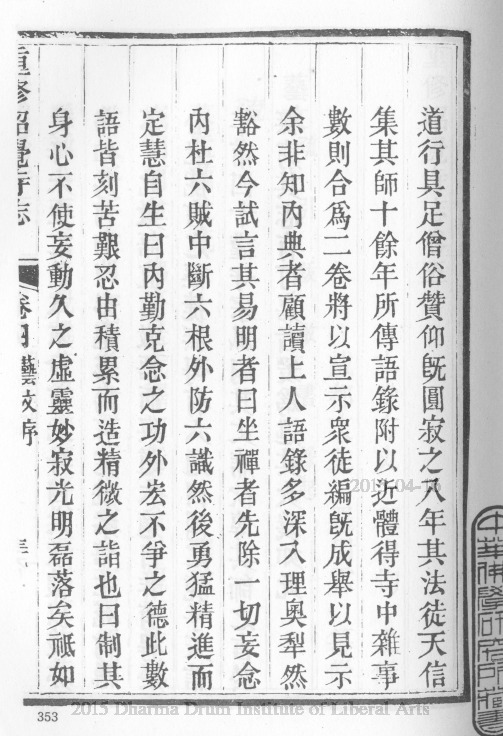 道行具足僧俗贊仰既圓寂之八年其法徒天信
集其師十餘年所傳語錄附以近體得寺中雜事
數則合爲二卷將以宣示衆徒編既成舉以見示
余非知內典者顧讀上人語錄多深入理奧犁然
豁然今試言其易明者曰坐禪者先除一切妄念
內杜六賊中斷六根外防六識然後勇猛精進而
定慧自生曰內勤克念之功外宏不爭之德此數
語皆刻苦艱忍由積累而造精微之詣也曰制其
身心不使妄動久之虛靈妙寂光明磊落矣祗如
重修昭覺寺志
卷四 藝文序
353
2015 Dharma Drum Institute of Liberal Arts
中華佛學研究所藏書